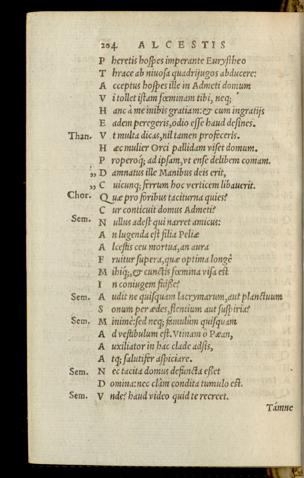 204 ALCESTIS
P heretis hoſpes imperante Euryſtheo
T hrace ab niuoſa quadrijugos abducere:
A cceptus hoſpes ille in Admeti domum
V i tollet iſtam fœminam tibi, neq;
H anc à me inibis gratiam: & cum ingratijs
E adem peregeris, odio eſſe haud deſines.
Than. V t multa dicas, nil tamen profeceris.
H æc mulier Orci pallidam viſet domum.
P roperoq; ad ipſam, vt enſe delibem comam.
,, D amnatus ille Manibus deis erit,
,, C uicunq; ferrum hoc verticem libauerit.
Chor. Q uæ pro foribus taciturna quies?
C ur conticuit domus Admeti?
Sem. N ullus adeſt qui narret amicus:
A n lugenda eſt filia Peliæ
A lceſtis ceu mortua, an aura
F ruitur ſupera, quæ optima longè
M ihiq;, & cunctis fœmina viſa eſt
I n coniugem fuiſſe?
Sem. A udit ne quiſquam lacrymarum, aut planctuum
S onum per ædes, flentium aut ſuſpiria?
Sem. M inimè: ſed neq; famulûm quiſquam
A d veſtibulum eſt. Vtinam ô Pæan,
A uxiliator in hac clade adſis,
A tq; ſalutifer aſpiciare.
Sem. N ec tacita domus defuncta eſſet
D omina: nec clàm condita tumulo eſt.
Sem. V nde? haud video quid te recreet.
Támne